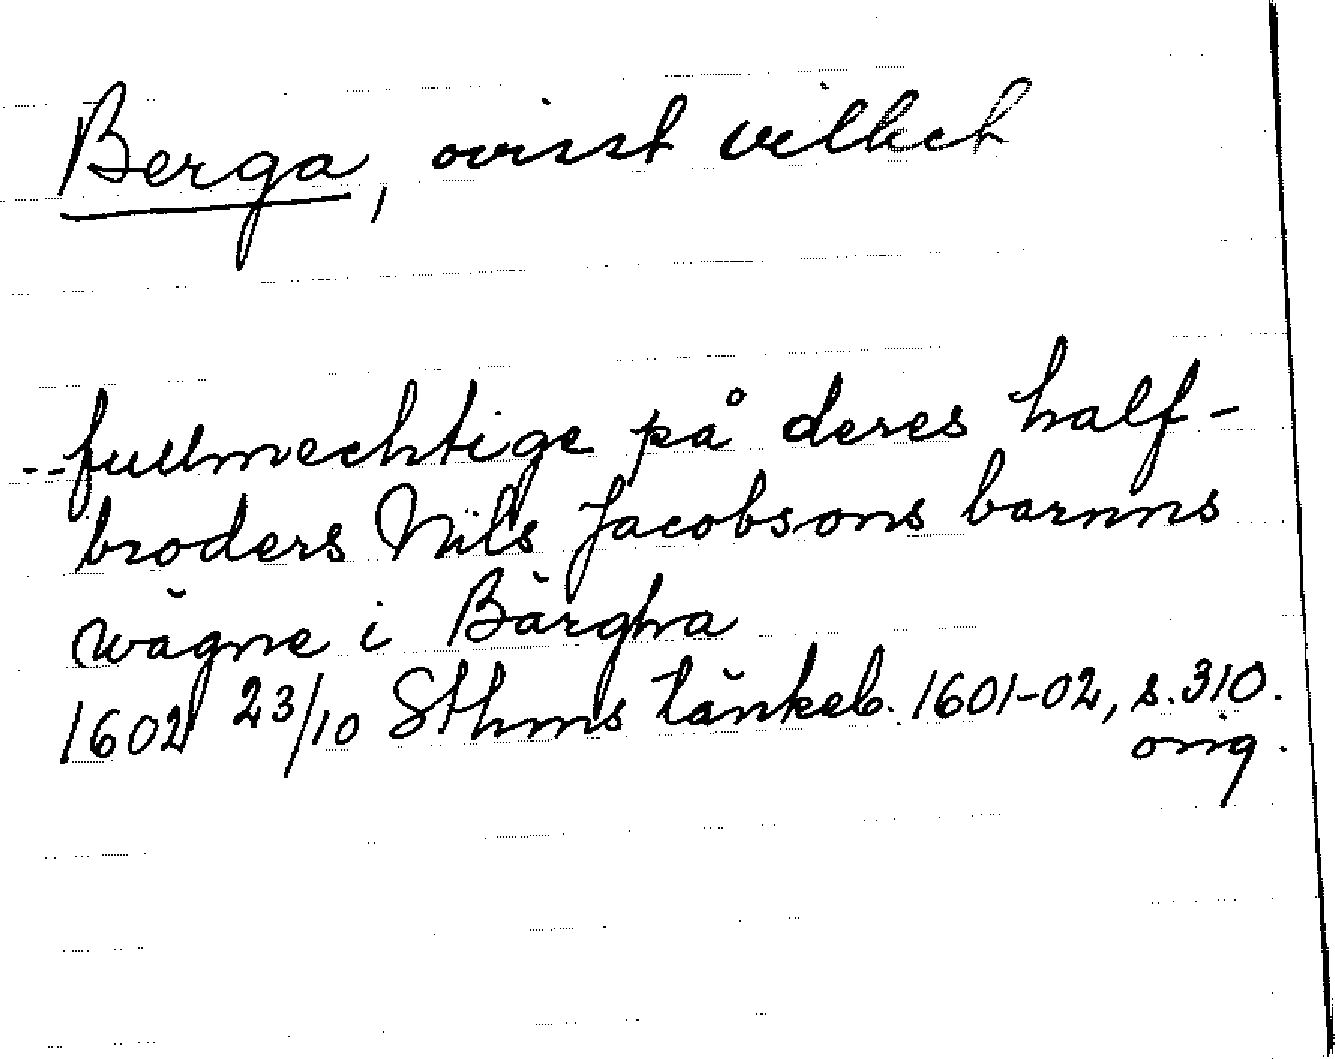 Berga, ovisst vilket
--fullmechtige på deres half-
broders Nils Jacobsons barnns
wägne i Bärgha
1602 23/10 Sthms tänkeb. 1601-02, s. 310.
orig.